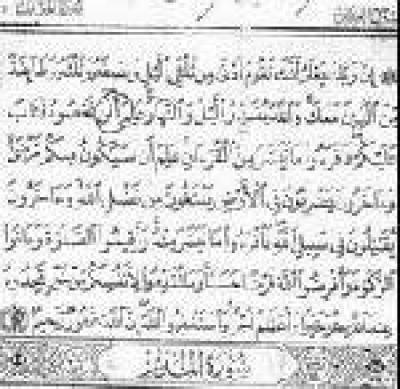 إن ربك يعلم أنك تقوم أدنى من ثلثي اليل ونصفه وثلثه وطائفة
من الذين معك والله يقدر اليل والنهار علم أن لن تحصوه فتاب
عليكم فاقرءوا ما تيسر من القرءان علم أن سيكون منكم مرضى
وءاخرون يضربون في الأرض يبتغون من فضل الله وءاخرون
يقتلون في سبيل الله فاقرءوا ما تيسر منه وأقيموا الصلوة وءاتوا
الزكوة وأقرضوا الله قرضا حسنا وما تقدموا لأنفسكم من خير تجدوه
عند الله هو خيرا وأعظم أجرا واستغفروا الله إن الله غفور رحيم
سورة المدثر